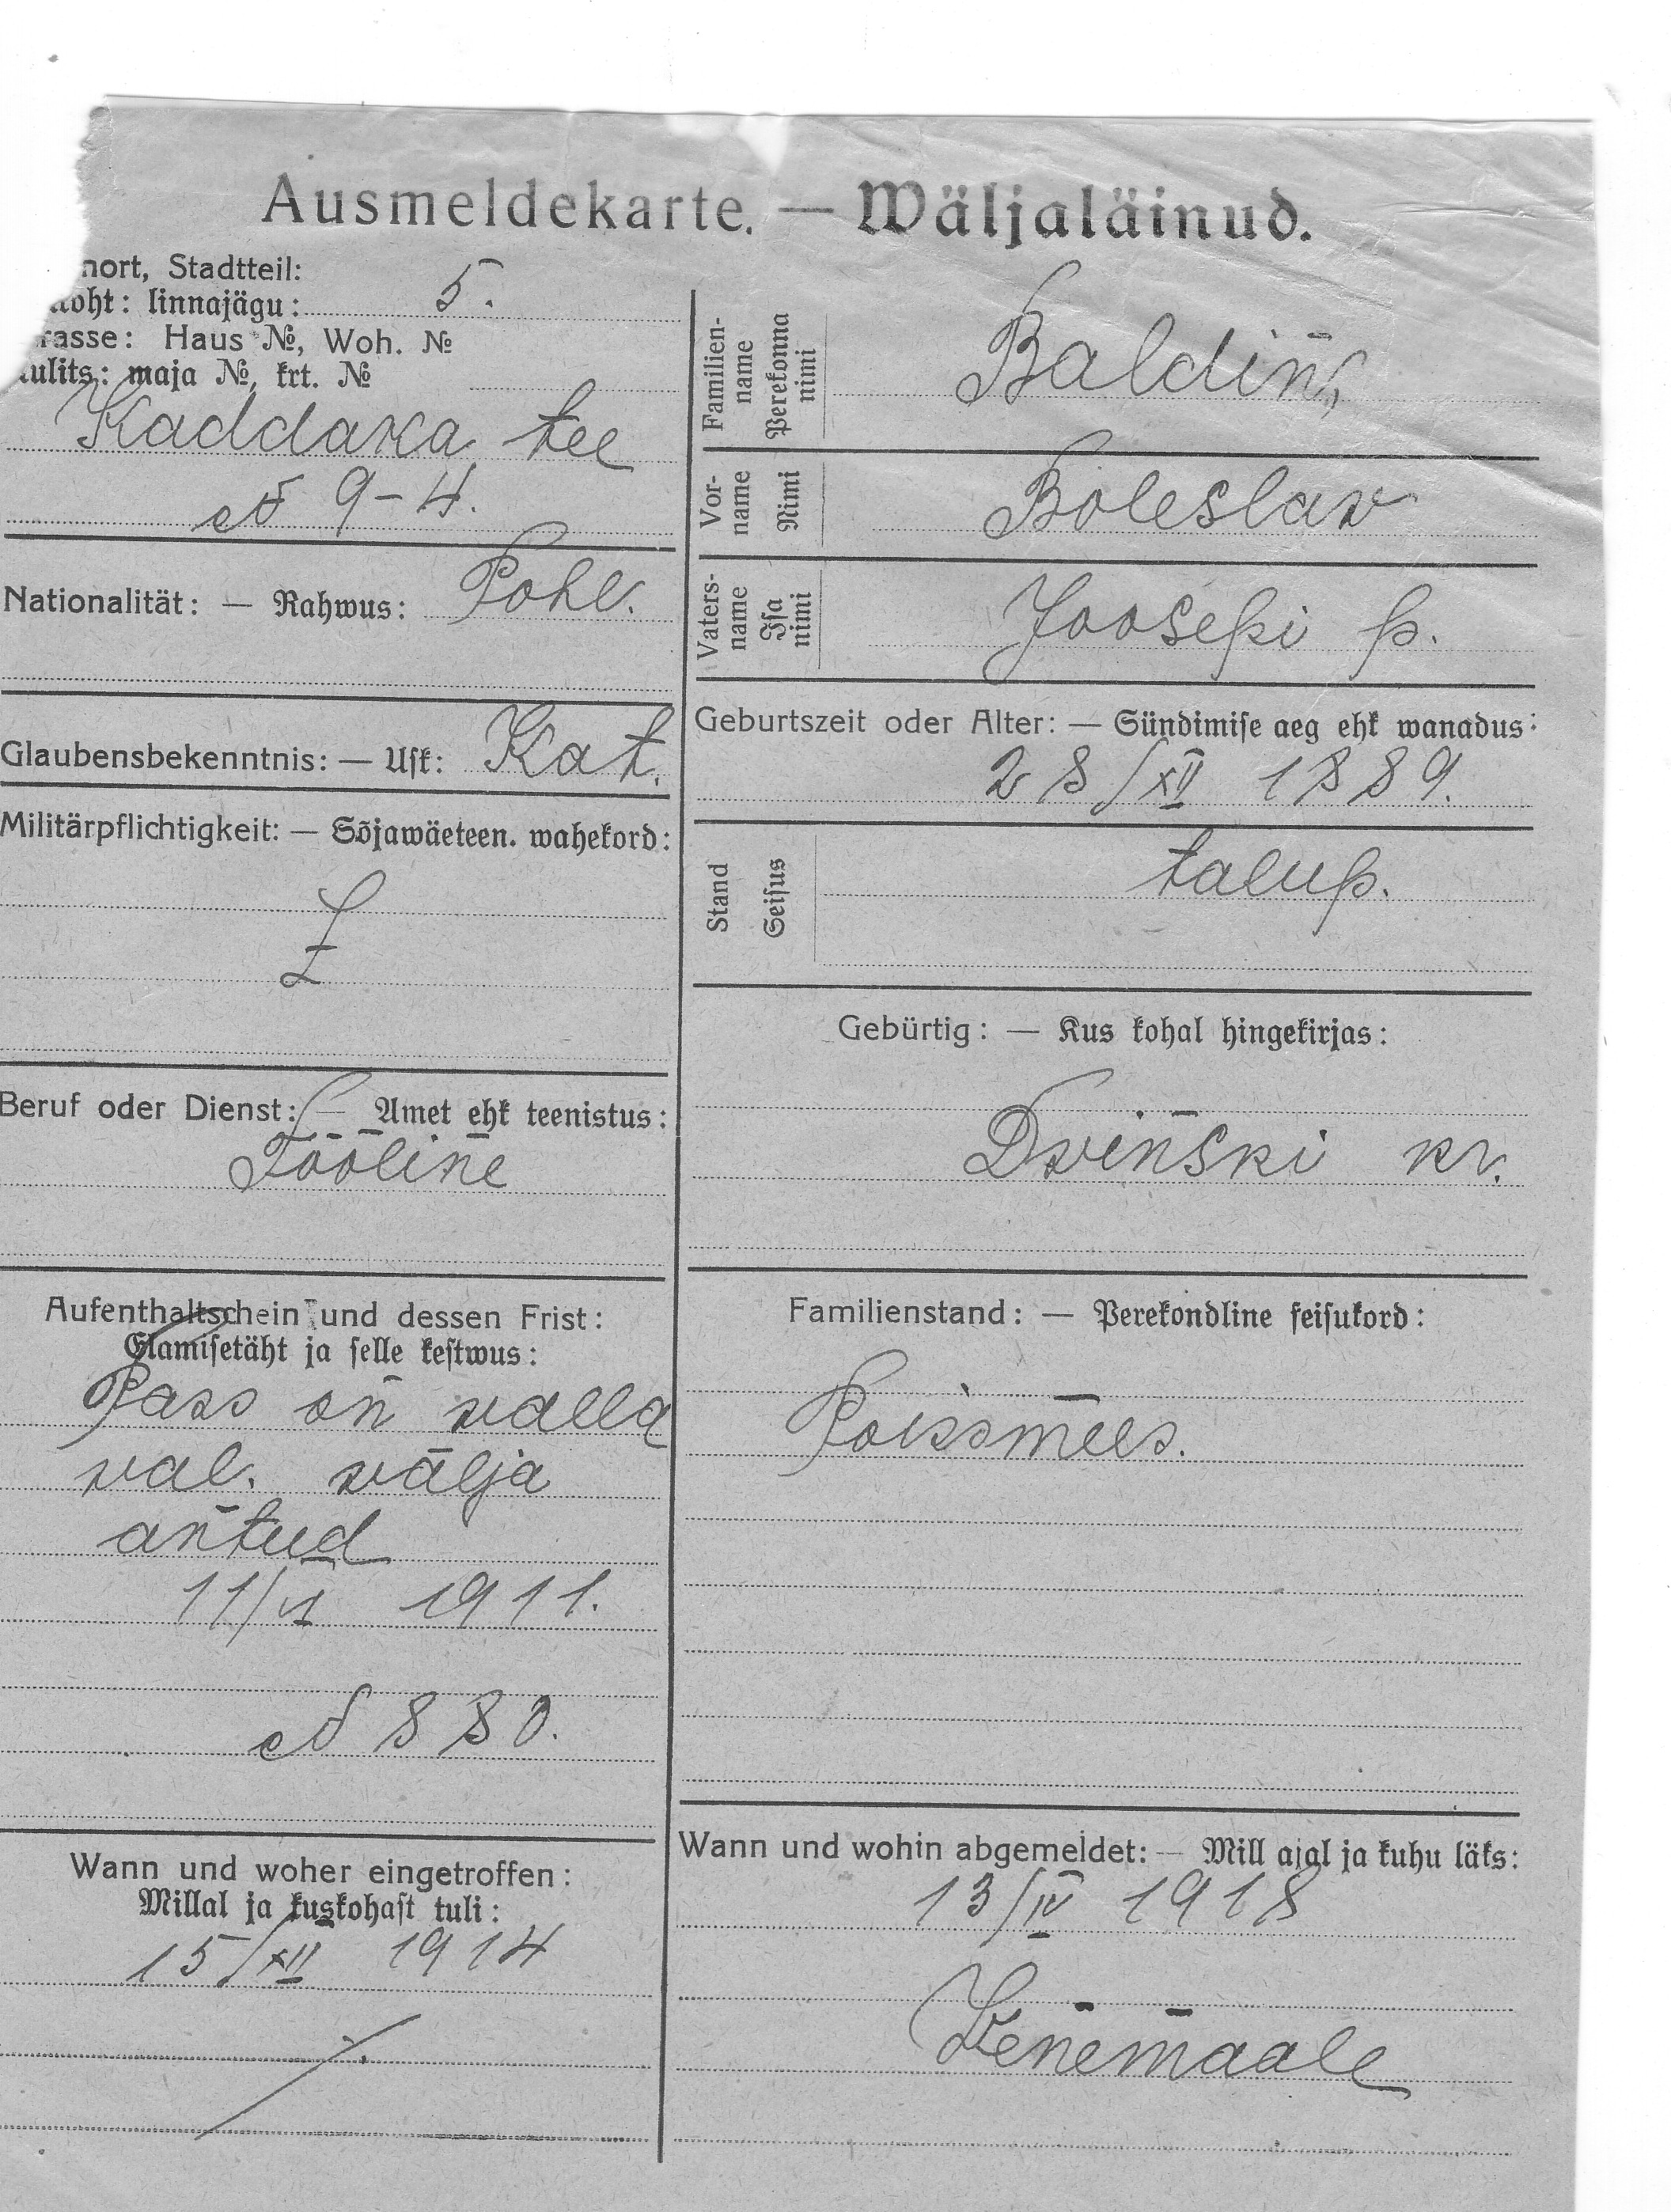 Ausmeldekarte. — Wäljaläinud.
nort, Stadtteil:
koht: linnajägu: 5.
rasse: Haus №, Woh. №
uulits: maja №, krt. №
Kaddaka tee
№ 9-4.
Nationalität: — Rahwus: Pohl.
Glaubensbekenntnis: — Usk: Kat.
Militärpflichtigkeit: — Sõjawäeteen. wahekord:
Beruf oder Dienst: — Amet ehk teenistus:
Tööline
Aufenthaltschein und dessen Frist:
Elamisetäht ja selle kestwus:
Pass on walla
wal. wälja
antud
11/VI 1911.
№ 880.
Wann und woher eingetroffen:
Millal ja kuskohast tuli:
15/XII 1914
Familien-
name
Perekonna
nimi
Baldin,
Vor-
name
Nimi
Boleslaw
Vaters-
name
Isa
nimi
Joosepi p.
Geburtszeit oder Alter: — Sündimise aeg ehk wanadus:
28/XII 1889.
Stand
Seisus
talup.
Gebürtig: — Kus kohal hingekirjas:
Dwinski kr.
Familienstand: — Perekondline seisukord:
Poissmees.
Wann und wohin abgemeldet: — Mill ajal ja kuhu läks:
13/IV 1918
Wenemaale